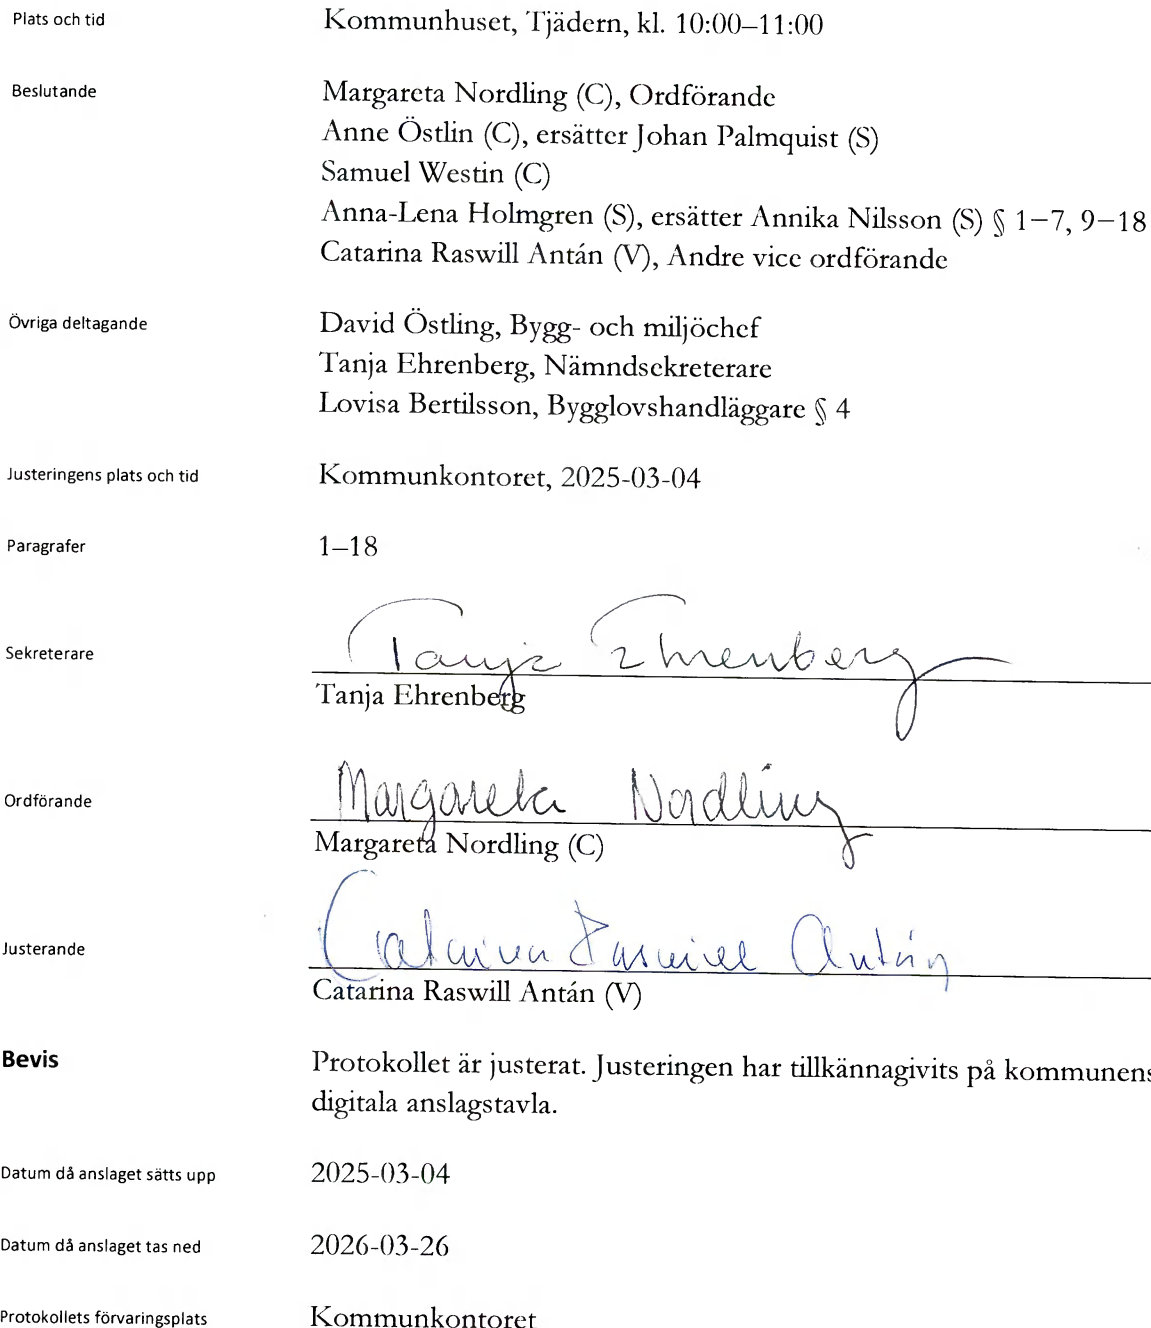 Plats och tid Kommunhuset, Tjädern, kl. 10:00–11:00
Beslutande Margareta Nordling (C), Ordförande
Anne Östlin (C), ersätter Johan Palmquist (S)
Samuel Westin (C)
Anna-Lena Holmgren (S), ersätter Annika Nilsson (S) § 1–7, 9–18
Catarina Raswill Antán (V), Andre vice ordförande
Övriga deltagande David Östling, Bygg- och miljöchef
Tanja Ehrenberg, Nämndsekreterare
Lovisa Bertilsson, Bygglovshandläggare § 4
Justeringens plats och tid Kommunkontoret, 2025-03-04
Paragrafer 1–18
Sekreterare Tanja Ehrenberg
Tanja Ehrenberg
Ordförande Margareta Nordling
Margareta Nordling (C)
Justerande Catarina Raswill Antán
Catarina Raswill Antán (V)
Bevis Protokollet är justerat. Justeringen har tillkännagivits på kommunens
digitala anslagstavla.
Datum då anslaget sätts upp 2025-03-04
Datum då anslaget tas ned 2026-03-26
Protokollets förvaringsplats Kommunkontoret